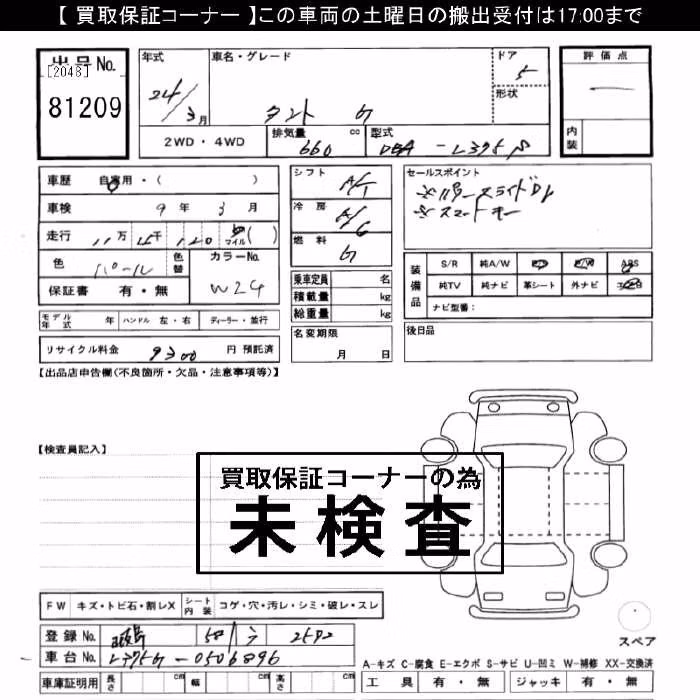 【 買取保証コーナー 】この車両の土曜日の搬出受付は17:00まで
出品 No.
[2048]
81209
年式
24/3月
車名・グレード
タント G
ドア
5
形状
評価点
内装
2WD・4WD
排気量 660 cc
型式 DBA-L375S
車歴 自家用・( )
車検 9年 3月
走行 11万 5千 120 マイル( )
色 パール 色替
カラーNo. W24
保証書 有・無
シフト A/T
冷房 A/C
燃料 G
乗車定員 名
積載量 kg
総重量 kg
セールスポイント
パワースライドDr
スマートキー
装備品
S/R 純A/W P/S P/W ABS
純TV 純ナビ 革シート 外ナビ エアB
ナビ型番:
モデル年式 年 ハンドル 左・右 ディーラー・並行
名変期限 月 日
後日品
リサイクル料金 9300 円 預託済
【出品店申告欄(不良箇所・欠品・注意事項等)】
【検査員記入】
買取保証コーナーの為
未検査
FW キズ・トビ石・割レX シート内装 コゲ・穴・汚レ・シミ・破レ・スレ
登録 No. 58 2592
車台 No. L375S-0506896
車庫証明用 長さ cm 幅 cm 高さ cm
スペア
A-キズ C-腐食 E-エクボ S-サビ U-凹ミ W-補修 XX-交換済
工具 有・無 ジャッキ 有・無